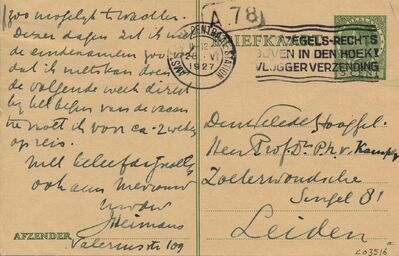 zoo mogelijk te wachten.
Dezer dagen zet ik
de eindexamens
dat ik niets kan doen
de volgende week direct
bij het begin van de vacan
tie moet ik voor ca. 2 weken
op reis.
Met beleefde groeten
ook aan Mevrouw
Uw dw
JHeimans
Valeriusstr 109
AFZENDER
A.78
BRIEFKAART
AMSTERDAM CENTRAAL STATION
1927
ZEGELS-RECHTS
BOVEN IN DEN HOEK!
VLUGGER VERZENDING
Den Weledel Hooggel.
Heer Prof Dr. Ph. v. Kampen
Zoeterwoudsche
Singel 81
Leiden